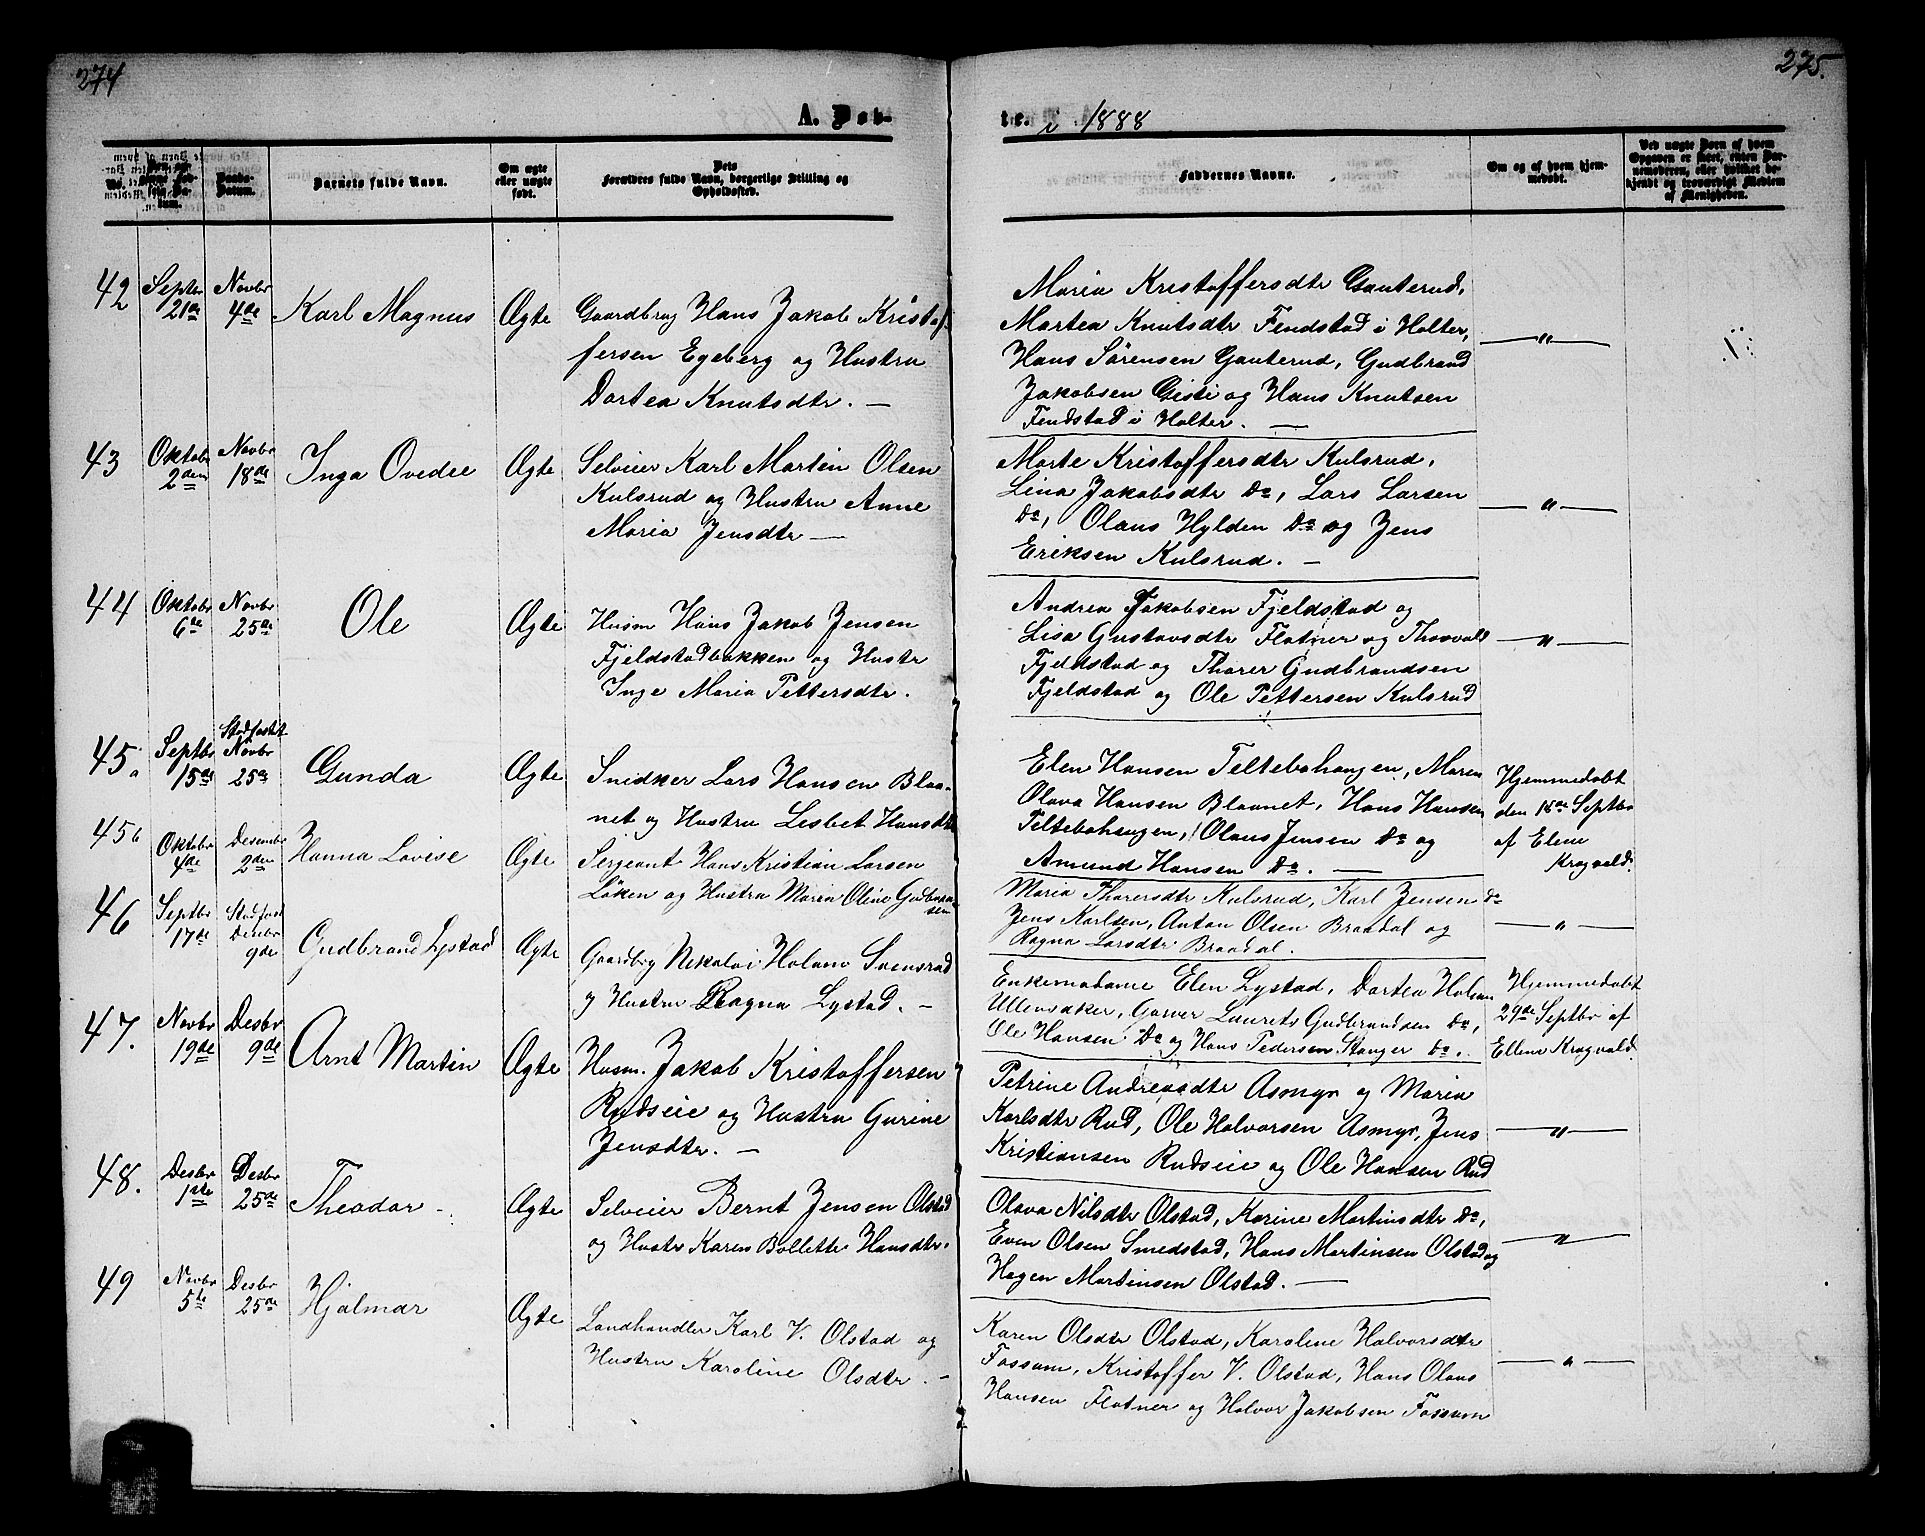 274
275.
A. Døb-
te. i 1888
No.
Daabs-
Datum.
Barnets fulde Navn.
Om ægte
eller uægte
født.
Dets
Forældres fulde Navn, borgerlige Stilling og
Opholdssted.
Faddernes Navne.
Om og af hvem hjem-
medøbt.
Ved uægte Børn af hvem
Opgaven er skeet, enten Bar-
nemoderen, eller hvilket be-
kjendt og troværdigt Medlem
af Menigheden.
42 Septbr 21de Novbr 4de Karl Magnus Ægte
Gaardbrug Hans Jakob Kristof-
fersen Egeberg og Hustru
Dortea Knutsdtr. —
Maria Kristoffersdtr Gauterud,
Martea Knutsdtr Fendstad i Holter,
Hans Sørensen Gauterud, Gudbrand
Jakobsen Gisti og Hans Knutsen
Fendstad i Holter. —
— " —
43 Oktobr 2den Novbr 18de Inga Ovedie Ægte
Selveier Karl Martin Olsen
Kulsrud og Hustru Anne
Maria Jensdtr —
Marte Kristoffersdtr Kulsrud,
Lina Jakobsdtr Do, Lars Larsen
Do, Olaus Hylden Do og Jens
Eriksen Kulsrud. —
— " —
44 Oktobr 6te Novbr 25de Ole Ægte
Husm Hans Jakob Jensen
Fjeldstadbakken og Hustr
Inge Maria Pettersdtr.
Andrea Jakobsen Fjeldstad og
Lisa Gustavsdtr Flatner og Thorvald
Fjeldstad og Thorer Gudbrandsen
Fjeldstad og Ole Pettersen Kulsrud
— " —
45a Septbr 15de Stadfæstet Novbr 25de Gunda Ægte
Snidker Lars Hansen Blaa-
net og Hustru Lisbet Hansdtr
Elen Hansen Teltebohaugen, Maren
Olava Hansen Blaanet, Hans Hansen
Teltebohaugen, Olaus Jensen Do og
Amund Hansen Do. —
Hjemmedøbt
den 15de Septbr
af Elene
Kragvald.
45b Oktobr 4de Desembr 2den Hanna Lovise Ægte
Sergeant Hans Kristian Larsen
Løken og Hustru Maren Oline Gudbran-
sen
Maria Thorersdtr Kulsrud, Karl Jensen Do
Jens Karlsen, Anton Olsen Braadal og
Ragna Larsdtr Braadal.
— " —
46 Septbr 17de Stadfæst Desbr 9de Gudbrand Lystad Ægte
Gaardbrg Nikolai Holum Svensrud
og Hustru Ragna Lystad. —
Enkemadame Elen Lystad, Dortea Holum
Ullensaker, Garver Laurets Gudbrandsen Do,
Ole Hansen Do og Hans Pedersen Stanger Do.
Hjemmedøbt
29de Septbr af
Ellene Kragvald.
47. Novbr 19de Desbr 9de Arnt Martin Ægte
Husm. Jakob Kristoffersen
Rudseie og Hustru Gurine
Jensdtr. —
Petrine Andreasdtr Asmyr og Maria
Karlsdtr Rud, Ole Halvorsen Asmyr, Jens
Kristiansen Rudseie og Ole Hansen Rud
— " —
48. Desbr 1ste Desbr 25de Theodor - Ægte
Selveier Bernt Jensen Olstad
og Hustr Karen Bollette Hansdtr.
Olava Nilsdtr Olstad, Karine Martinsdtr Do,
Even Olsen Smedstad, Hans Martinsen Olstad og
Hagen Martinsen Olstad. —
— " —
49 Novbr 5te Desbr 25de Hjalmar Ægte
Landhandler Karl V. Olstad og
Hustru Karoline Olsdtr. —
Karen Olsdtr Olstad, Karoline Halvorsdtr
Fossum, Kristoffer V. Olstad, Hans Olaus
Hansen Flatner og Halvor Jakobsen Fossum
— " —